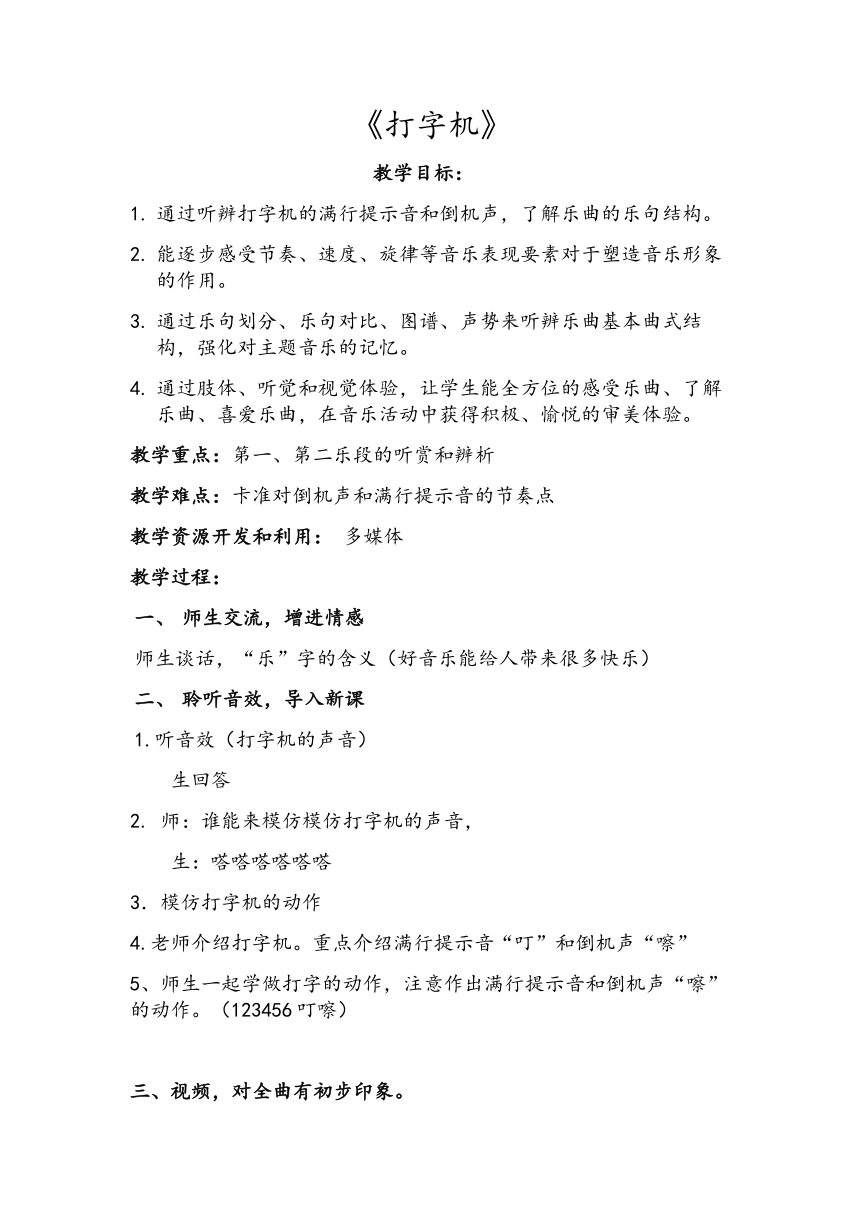 《打字机》
教学目标：
1. 通过听辨打字机的满行提示音和倒机声，了解乐曲的乐句结构。
2. 能逐步感受节奏、速度、旋律等音乐表现要素对于塑造音乐形象
的作用。
3. 通过乐句划分、乐句对比、图谱、声势来听辨乐曲基本曲式结
构，强化对主题音乐的记忆。
4. 通过肢体、听觉和视觉体验，让学生能全方位的感受乐曲、了解
乐曲、喜爱乐曲，在音乐活动中获得积极、愉悦的审美体验。
教学重点：第一、第二乐段的听赏和辨析
教学难点：卡准对倒机声和满行提示音的节奏点
教学资源开发和利用： 多媒体
教学过程：
一、 师生交流，增进情感
师生谈话，“乐”字的含义（好音乐能给人带来很多快乐）
二、 聆听音效，导入新课
1.听音效（打字机的声音）
生回答
2. 师：谁能来模仿模仿打字机的声音，
生：嗒嗒嗒嗒嗒嗒
3．模仿打字机的动作
4.老师介绍打字机。重点介绍满行提示音“叮”和倒机声“嚓”
5、师生一起学做打字的动作，注意作出满行提示音和倒机声“嚓”
的动作。（123456 叮嚓）
三、视频，对全曲有初步印象。